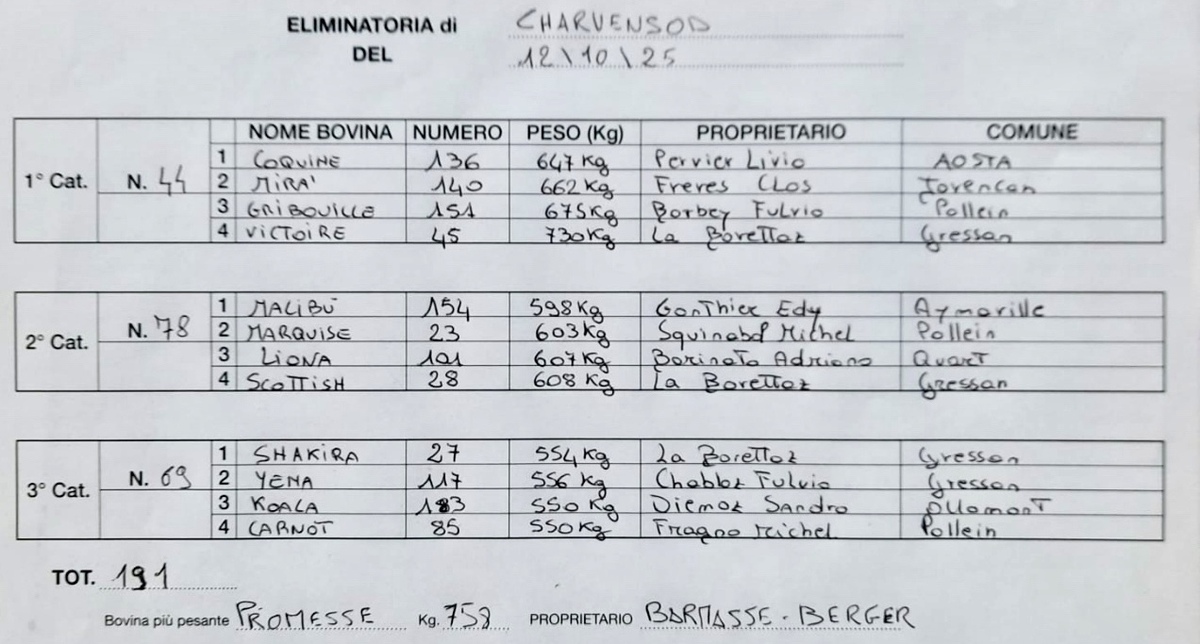 ELIMINATORIA di CHARVENSOD
DEL 12\10\25
NOME BOVINA NUMERO PESO (Kg) PROPRIETARIO COMUNE
1° Cat. N. 44
1 COQUINE 136 647 Kg Pervier Livio AOSTA
2 MIRA' 140 662 Kg Freres Clos Jovencan
3 GRIBOUILLE 151 675 Kg Borbey Fulvio Pollein
4 VICTOIRE 45 730 Kg La Borettaz Gressan
2° Cat. N. 78
1 MALIBÙ 154 598 Kg Gonthier Edy Aymaville
2 MARQUISE 23 603 Kg Squinabol Michel Pollein
3 LIONA 101 607 Kg Barinato Adriano Quart
4 SCOTTISH 28 608 Kg La Borettaz Gressan
3° Cat. N. 69
1 SHAKIRA 27 554 Kg La Borettaz Gressan
2 YENA 117 556 Kg Chabloz Fulvio Gressan
3 KOALA 183 550 Kg Diemoz Sandro Ollomont
4 CARNOT 85 550 Kg Fragno Michel Pollein
TOT. 191
Bovina più pesante PROMESSE Kg. 758 PROPRIETARIO BARMASSE - BERGER